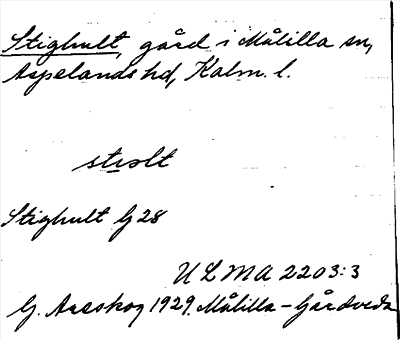 Stighult, gård i Målilla sn,
Aspelands hd, Kalm. l.
Stighult G 28
ULMA 2203:3
G. Areskog 1929. Målilla-Gårdveda